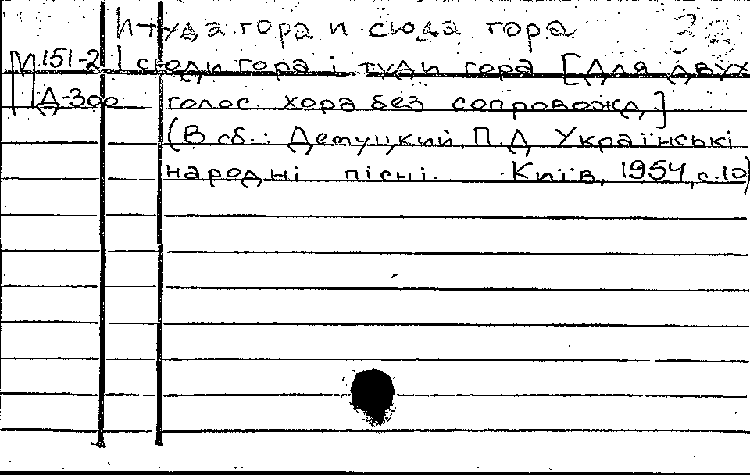 И туда гора и сюда гора
М 151-2 І сюди гора і туди гора [Для двух
Д-300 голос. хора без сопровожд.]
(В сб.: Демуцкий, П.Д. Українські
народні пісні. Київ, 1954, с.10)